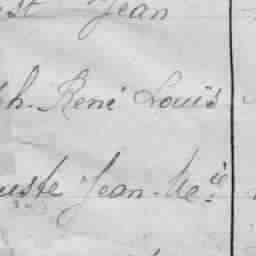 st Jean
h. René Louis
uste Jean. M.ie